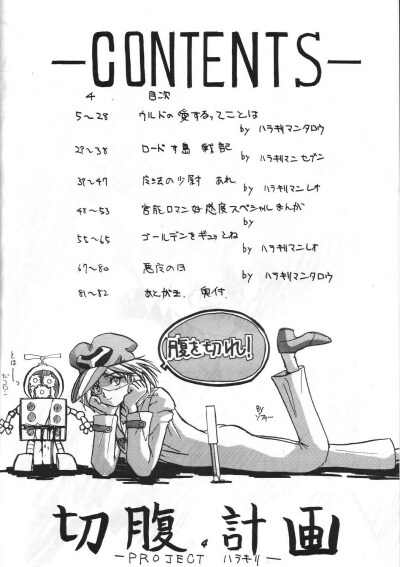 —CONTENTS—
4 目次
5～28 ウルドの愛するってことは
by ハラキリマンタロウ
29～38 ロード す島 戦記
by ハラキリマン セブン
39～47 魔法の少尉 あれ
by ハラキリマンレオ
48～53 官能ロマン好感度スペシャルまんが
by
55～65 ゴールデンをギュッとね
by ハラキリマンレオ
67～80 悪夜の日
by ハラキリマンタロウ
81～82 あとがき 奥付
腹を切れ!
By ソフィー
切腹計画
—PROJECT ハラキリ—